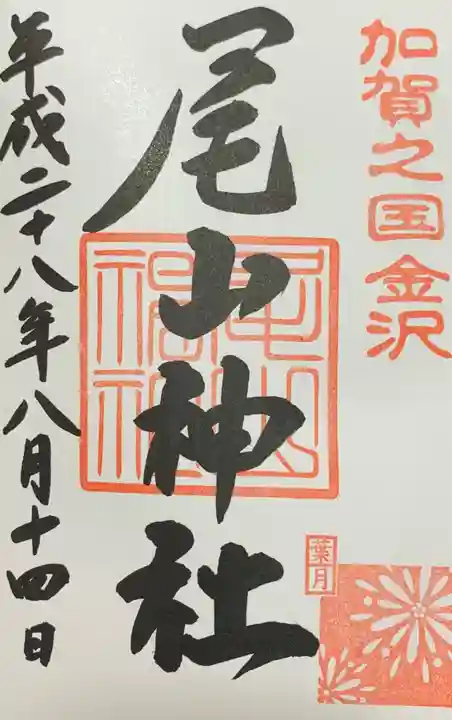 加賀之国金沢
尾山神社
葉月
平成二十八年八月十四日